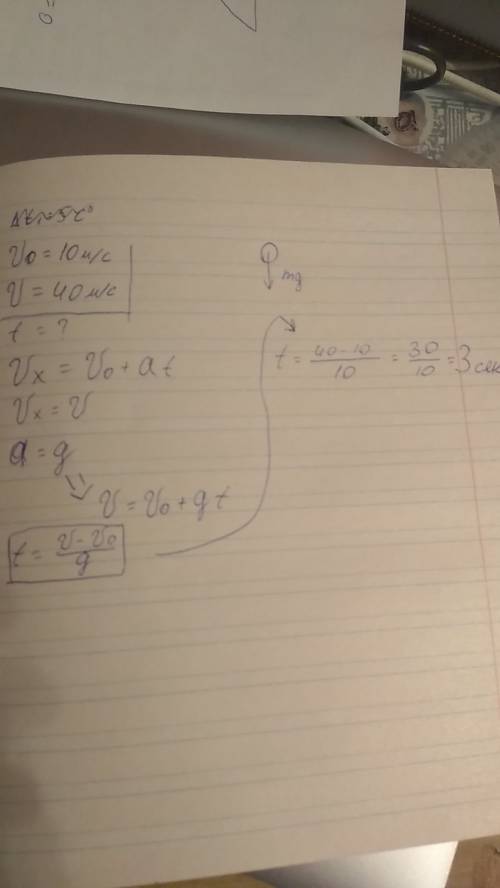 V₀ = 10 м/с
V = 40 м/с
t = ?
Vₓ = V₀ + at
Vₓ = V
a = g
V = V₀ + gt
t = (V - V₀)/g
mg
t = (40-10)/10 = 30/10 = 3 сек